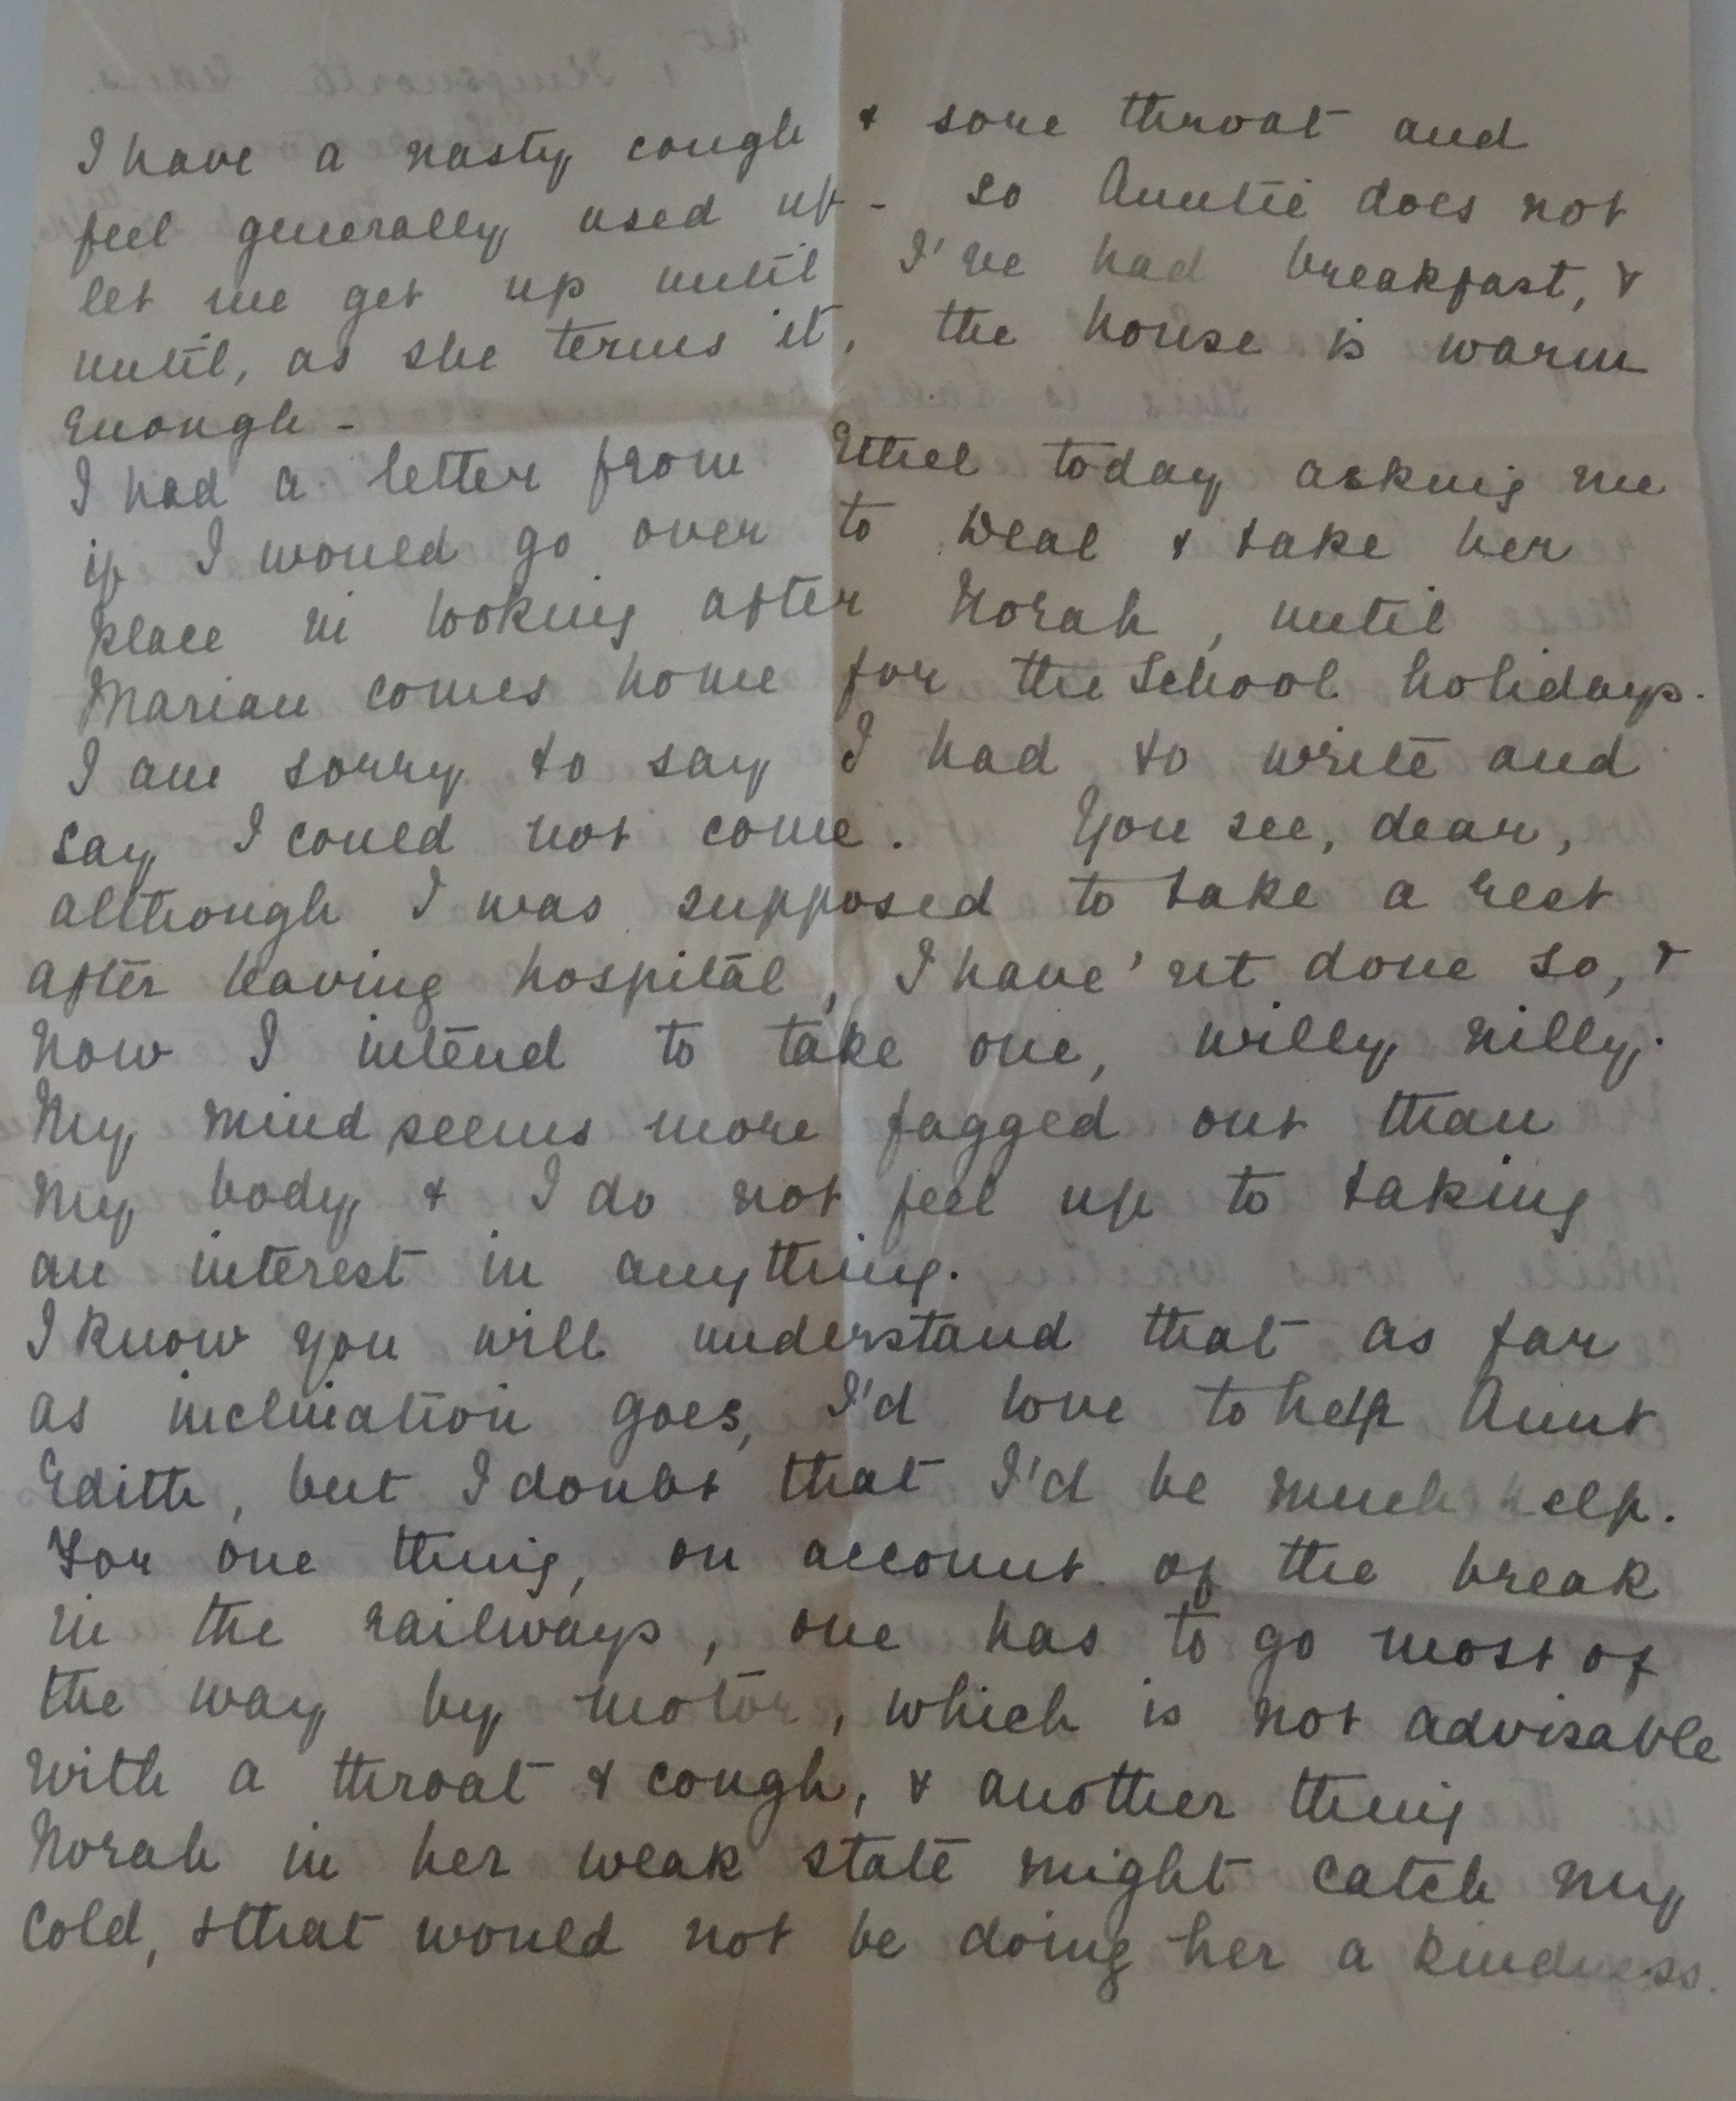 I have a nasty cough & sore throat and
feel generally used up - so Auntie does not
let me get up until I've had breakfast, &
until, as she terms it, the house is warm
enough -
I had a letter from Ethel today asking me
if I would go over to Deal & take her
place in looking after Norah, until
Marian comes home for the School holidays.
I am sorry to say I had to write and
say I could not come. You see, dear,
although I was supposed to take a rest
after leaving hospital, I have'nt done so, &
now I intend to take one, willy nilly.
My mind seems more fagged out than
my body & I do not feel up to taking
an interest in anything.
I know you will understand that as far
as inclination goes, I'd love to help Aunt
Edith, but I doubt that I'd be much help.
For one thing, on account of the break
in the railways, one has to go most of
the way by motor, which is not advisable
with a throat & cough, & another thing
Norah in her weak state might catch my
cold, & that would not be doing her a kindness.